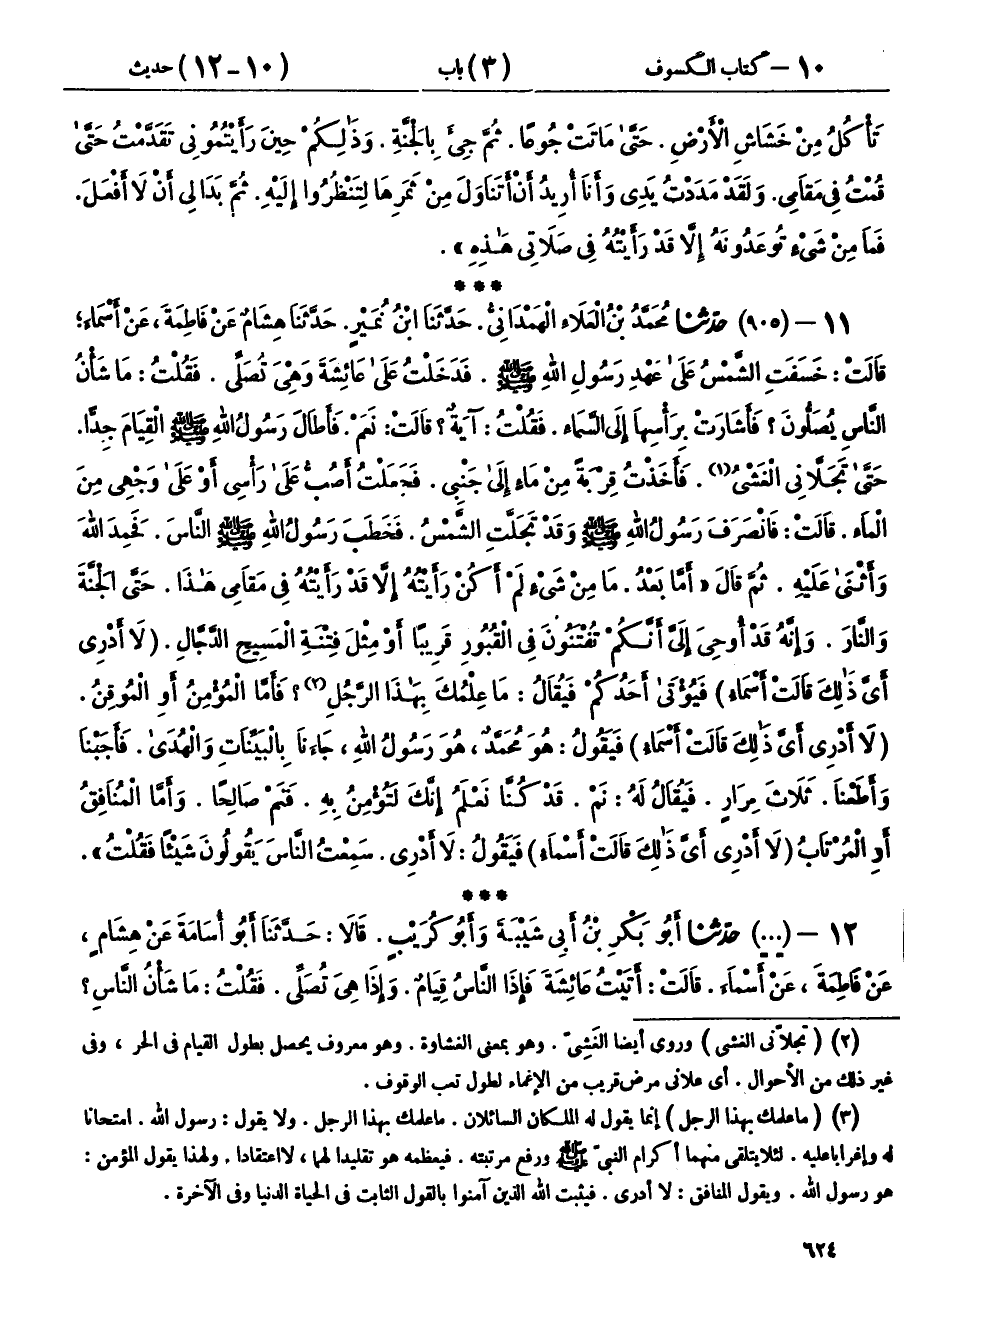 ١٠ – كتاب الكسوف (٣) باب (١٠-١٢) حديث
تَأْكُلُ مِنْ خَشَاشِ الْأَرْضِ . حَتَّىٰ مَاتَتْ جُوعًا . ثُمَّ جِىءَ بِالْجَنَّةِ . وَذٰلِكُمْ حِينَ رَأَيْتُمُونِى تَقَدَّمْتُ حَتَّىٰ
قُمْتُ فِى مَقَامِى. وَلَقَدْ مَدَدْتُ يَدِى وَأَنَا أُرِيدُ أَنْ أَتَنَاوَلَ مِنْ ثَمَرِهَا لِتَنْظُرُوا إِلَيْهِ. ثُمَّ بَدَا لِى أَنْ لَا أَفْعَلَ.
فَمَا مِنْ شَىْءٍ تُوعَدُونَهُ إِلَّا قَدْ رَأَيْتُهُ فِى صَلَاتِى هَـٰذِهِ » .
***
١١ – (٩٠٥) حدّثنا مُحَمَّدُ بْنُ الْعَلَاءِ الْهَمْدَانِىُّ. حَدَّثَنَا ابْنُ نُمَيْرٍ. حَدَّثَنَا هِشَامٌ عَنْ فَاطِمَةَ ، عَنْ أَسْمَاءَ؛
قَالَتْ : خَسَفَتِ الشَّمْسُ عَلَىٰ عَهْدِ رَسُولِ اللهِ ﷺ . فَدَخَلْتُ عَلَىٰ عَائِشَةَ وَهِىَ تُصَلِّى . فَقُلْتُ : مَا شَأْنُ
النَّاسِ يُصَلُّونَ ؟ فَأَشَارَتْ بِرَأْسِهَا إِلَى السَّمَاءِ . فَقُلْتُ : آيَةٌ ؟ قَالَتْ: نَعَمْ. فَأَطَالَ رَسُولُ اللهِ ﷺ الْقِيَامَ جِدًّا.
حَتَّىٰ تَجَلَّانِى الْغَشْىُ(١) . فَأَخَذْتُ قِرْبَةً مِنْ مَاءٍ إِلَىٰ جَنْبِى . فَجَعَلْتُ أَصُبُّ عَلَىٰ رَأْسِى أَوْ عَلَىٰ وَجْهِى مِنَ
الْمَاءِ . قَالَتْ: فَانْصَرَفَ رَسُولُ اللهِ ﷺ وَقَدْ تَجَلَّتِ الشَّمْسُ. فَخَطَبَ رَسُولُ اللهِ ﷺ النَّاسَ . فَحَمِدَ اللهَ
وَأَثْنَىٰ عَلَيْهِ . ثُمَّ قَالَ « أَمَّا بَعْدُ . مَا مِنْ شَىْءٍ لَمْ أَكُنْ رَأَيْتُهُ إِلَّا قَدْ رَأَيْتُهُ فِى مَقَامِى هَـٰذَا . حَتَّى الْجَنَّةَ
وَالنَّارَ . وَإِنَّهُ قَدْ أُوحِىَ إِلَىَّ أَنَّكُمْ تُفْتَنُونَ فِى الْقُبُورِ قَرِيبًا أَوْ مِثْلَ فِتْنَةِ الْمَسِيحِ الدَّجَّالِ . (لَا أَدْرِى
أَىَّ ذٰلِكَ قَالَتْ أَسْمَاءُ) فَيُؤْتَىٰ أَحَدُكُمْ فَيُقَالُ : مَا عِلْمُكَ بِهَـٰذَا الرَّجُلِ(٢) ؟ فَأَمَّا الْمُؤْمِنُ أَوِ الْمُوقِنُ .
(لَا أَدْرِى أَىَّ ذٰلِكَ قَالَتْ أَسْمَاءُ) فَيَقُولُ : هُوَ مُحَمَّدٌ ، هُوَ رَسُولُ اللهِ ، جَاءَنَا بِالْبَيِّنَاتِ وَالْهُدَىٰ . فَأَجَبْنَا
وَأَطَعْنَا . ثَلَاثَ مِرَارٍ . فَيُقَالُ لَهُ : نَمْ . قَدْ كُنَّا نَعْلَمُ إِنَّكَ لَتُؤْمِنُ بِهِ . فَنَمْ صَالِحًا . وَأَمَّا الْمُنَافِقُ
أَوِ الْمُرْتَابُ (لَا أَدْرِى أَىَّ ذٰلِكَ قَالَتْ أَسْمَاءُ) فَيَقُولُ : لَا أَدْرِى . سَمِعْتُ النَّاسَ يَقُولُونَ شَيْئًا فَقُلْتُ » .
***
١٢ – (...) حدّثنا أَبُو بَكْرِ بْنُ أَبِى شَيْبَةَ وَأَبُو كُرَيْبٍ . قَالَا : حَدَّثَنَا أَبُو أُسَامَةَ عَنْ هِشَامٍ ،
عَنْ فَاطِمَةَ ، عَنْ أَسْمَاءَ . قَالَتْ : أَتَيْتُ عَائِشَةَ فَإِذَا النَّاسُ قِيَامٌ . وَإِذَا هِىَ تُصَلِّى . فَقُلْتُ : مَا شَأْنُ النَّاسِ ؟
(٢) ( تجلاّنى الغشى ) وروى أيضا الغَشِىّ . وهو بمعنى الغشاوة . وهو معروف يحصل بطول القيام فى الحر ، وفى
غير ذلك من الأحوال . أى علانى مرض قريب من الإغماء لطول تعب الوقوف .
(٣) ( ماعلمك بهذا الرجل ) إنما يقول له الملكان السائلان . ماعلمك بهذا الرجل . ولا يقول : رسول الله . امتحانا
له وإغرابا عليه . لئلا يتلقى منهما أكرام النبىّ ﷺ ورفع مرتبته . فيعظمه هو تقليدا لهما ، لا اعتقادا . ولهذا يقول المؤمن :
هو رسول الله . ويقول المنافق : لا أدرى . فيثبت الله الذين آمنوا بالقول الثابت فى الحياة الدنيا وفى الآخرة .
٦٢٤